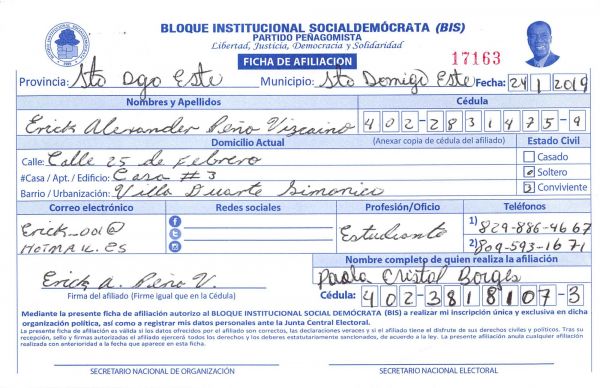 BLOQUE INSTITUCIONAL SOCIALDEMÓCRATA (BIS)
PARTIDO PEÑAGOMISTA
Libertad, Justicia, Democracia y Solidaridad
FICHA DE AFILIACION
17163
Provincia: Sto Dgo Este Municipio: Sto Domigo Este Fecha: 24 1 2019
Nombres y Apellidos Cédula
Erick Alexander Peño Vizcaino 402-2831475-9
Domicilio Actual (Anexar copia de cédula del afiliado) Estado Civil
Calle: Calle 25 de Febrero
Casado
#Casa / Apt. / Edificio: Casa #3
Soltero
Barrio / Urbanización: Villa Duarte Simonico
Conviviente
Correo electrónico Redes sociales Profesión/Oficio Teléfonos
Erick_001@
HOTMAIL.ES
Estudiante
1) 829-886-4667
2) 809-593-1671
Nombre completo de quien realiza la afiliación
Erick A. Peño V.
Paola Cristal Borges
Firma del afiliado (Firme igual que en la Cédula)
Cédula: 402-3818107-3
Mediante la presente ficha de afiliación autorizo al BLOQUE INSTITUCIONAL SOCIAL DEMÓCRATA (BIS) a realizar mi inscripción única y exclusiva en dicha
organización política, así como a registrar mis datos personales ante la Junta Central Electoral.
La presente ficha de afiliación es válida si los datos ofrecidos por el afiliado son correctos, las declaraciones veraces y si el afiliado tiene el disfrute de sus derechos civiles y políticos. Tras su
recepción, sello y firmas autorizadas el afiliado ejercerá todos los derechos y los deberes estatutariamente sancionados, de acuerdo a la ley. La presente afiliación anula cualquier afiliación
realizada con anterioridad a la fecha que aparece en esta ficha.
SECRETARIO NACIONAL DE ORGANIZACIÓN SECRETARIO NACIONAL ELECTORAL